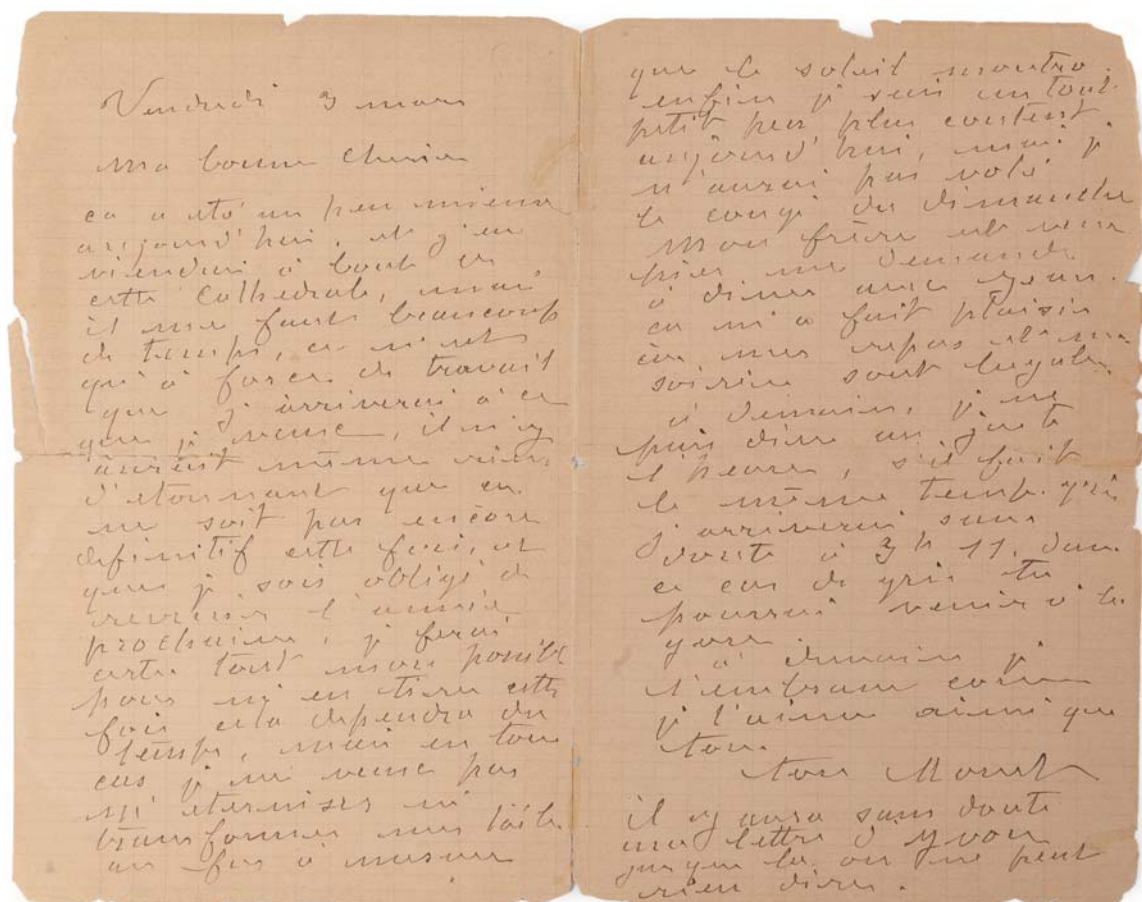 Vendredi 3 mars
Ma bonne Chérie
ça a été un peu mieux
aujourd'hui, et j'en
viendrai à bout de
cette Cathédrale, mais
il me faut beaucoup
de temps, ce n'est
qu'à force de travail
que j'arriverai à ce
que je veux, il n'y
aurait même rien
d'étonnant que ce
ne soit pas encore
définitif cette fois, et
que je sois obligé de
revenir l'année
prochaine, je ferai
certes tout mon possible
pour m'en tirer cette
fois cela dépendra du
temps, mais en tous
cas je ne veux pas
m'éterniser ni
transformer mes toiles
au fur à mesure
que le soleil montra.
enfin je suis un tout
petit peu plus content
aujourd'hui, mais je
n'aurai pas volé
le congé du dimanche
Mon frère est venu
hier me demander
à diner avec Jean.
ça m'a fait plaisir
car mes repas et ma
soirée sont lugubres
à demain, je ne
puis dire au juste
l'heure, s'il fait
le même temps gris
j'arriverai sans
doute à 3h 11, dans
ce cas de gris tu
pourrai venir à la
gare.
à demain je
t'embrasse comme
je t'aime ainsi que
tous
ton Monet
il y aura sans doute
une lettre d'Yvon
jusque là on ne peut
rien dire.